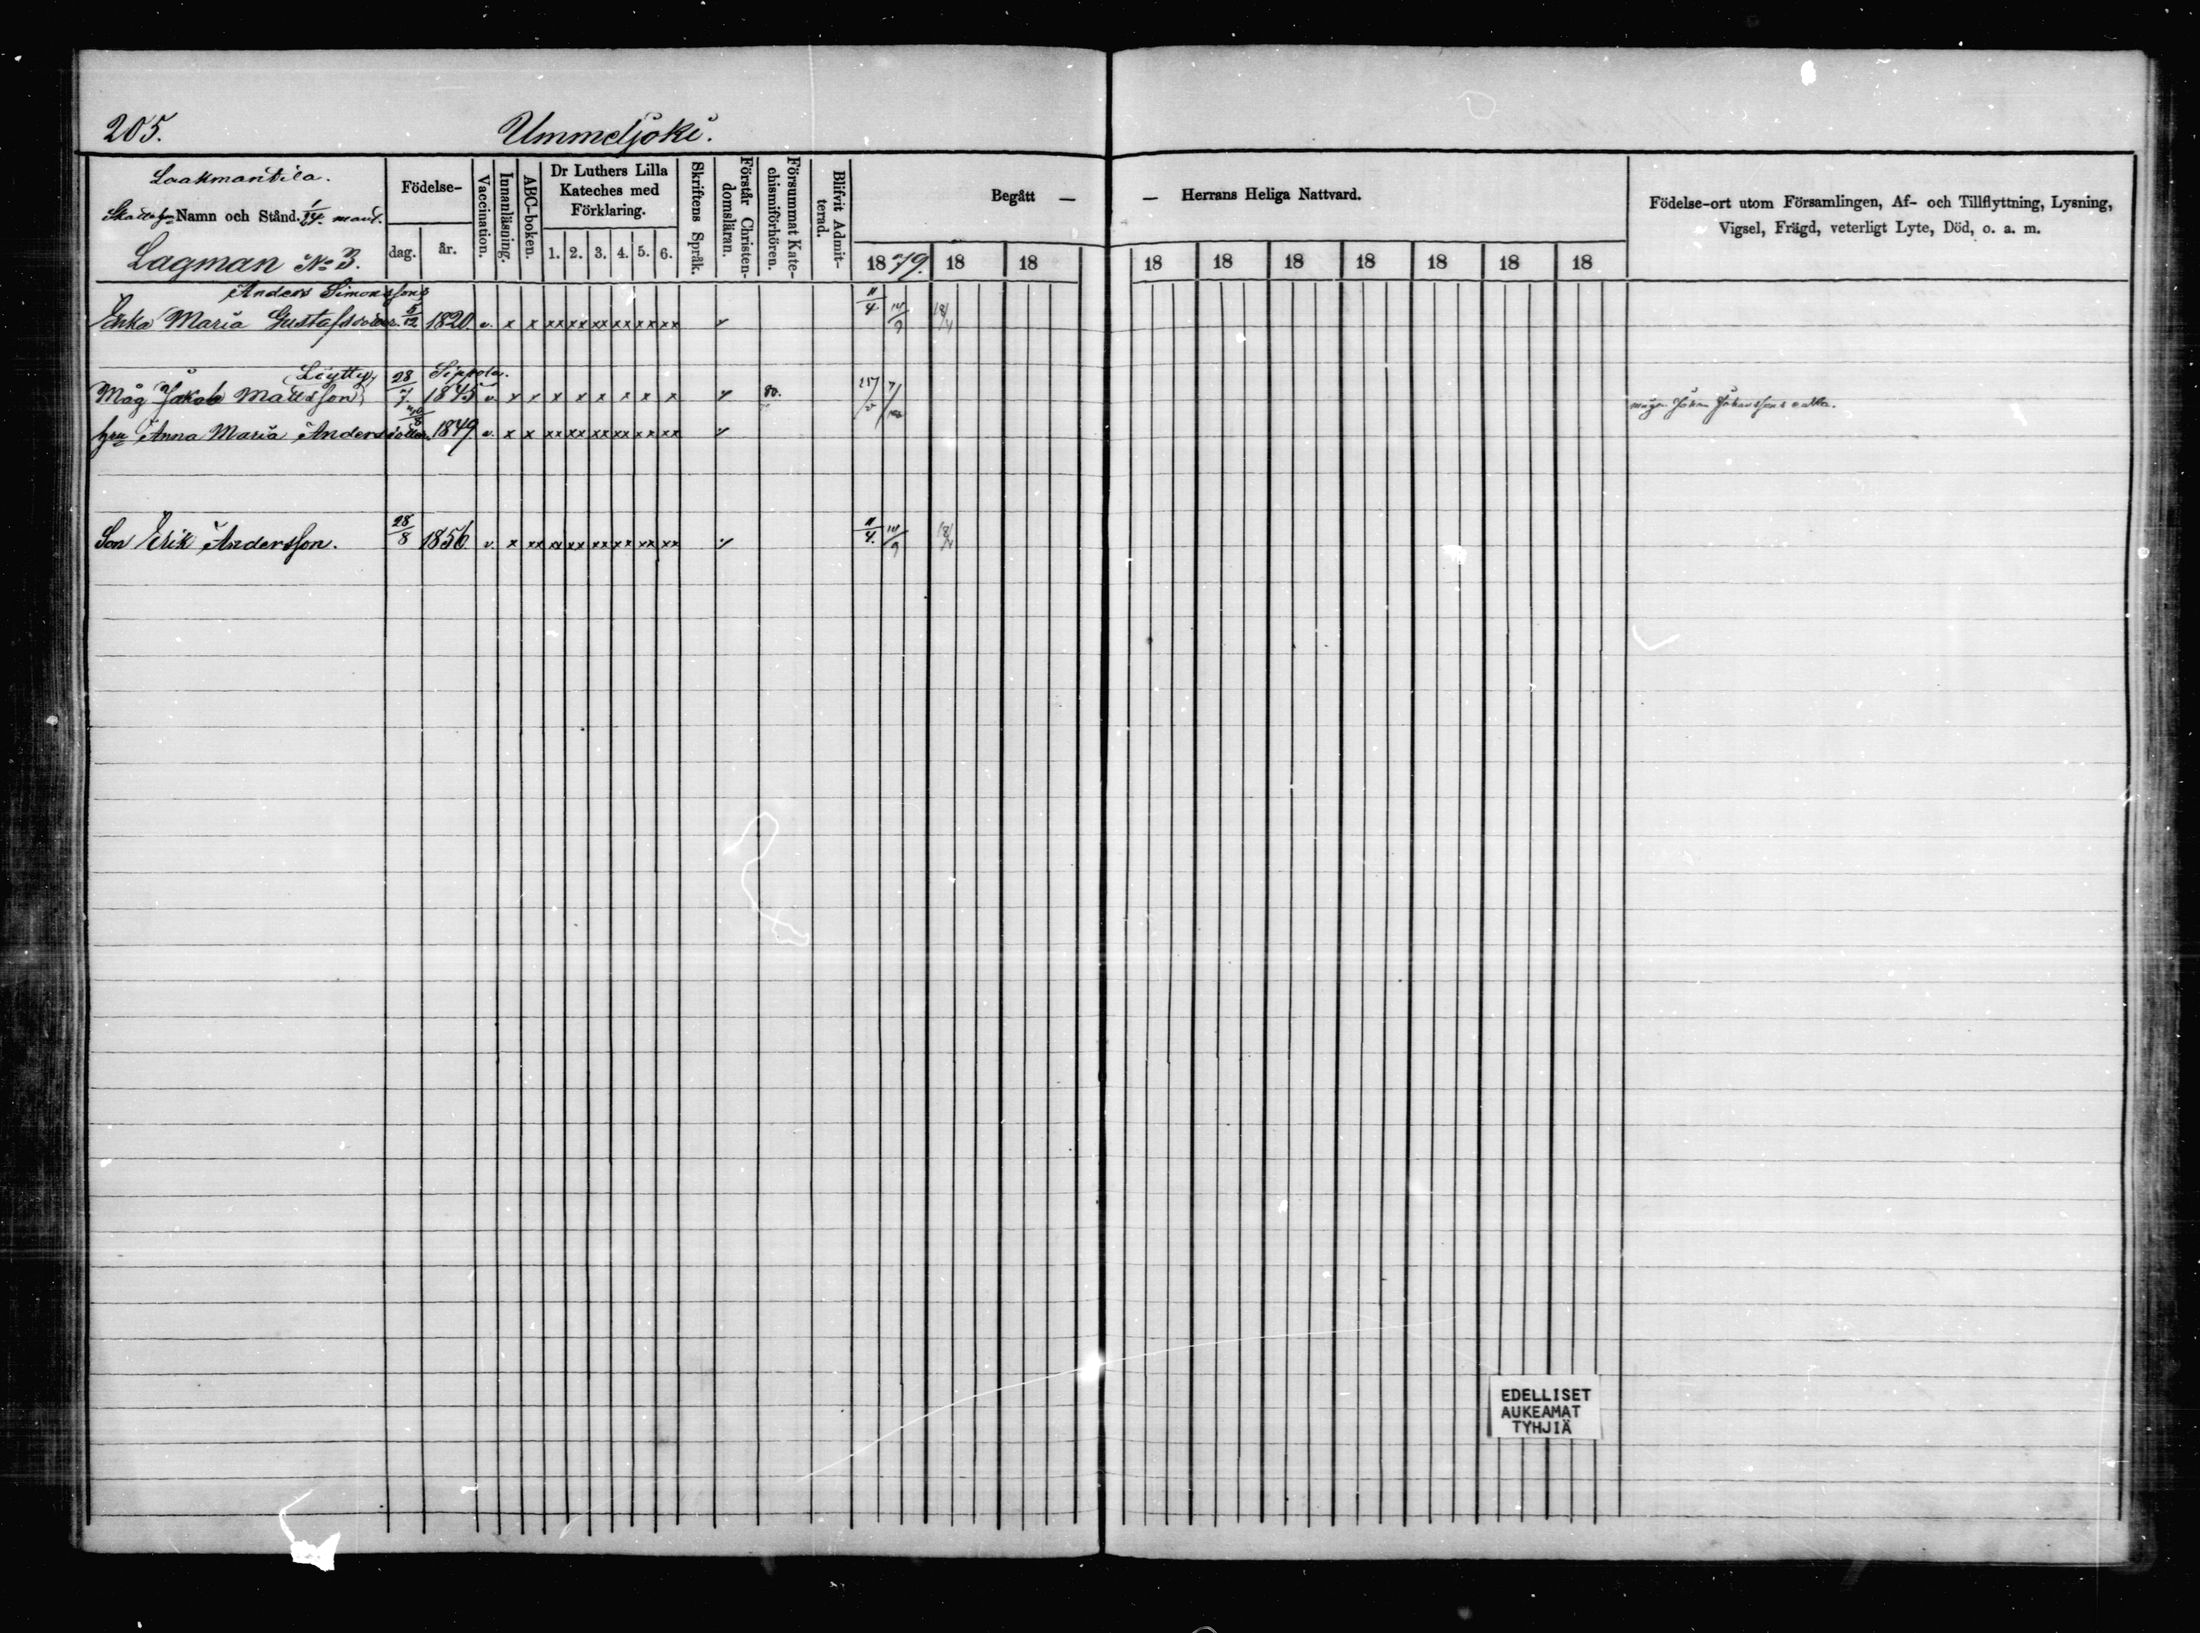 205. Ummeljoki.
Laakmantila.
Namn och Stånd. 1/14 mant.
Lagman No 3.
Födelse-
dag. år.
Vaccination.
Innanläsning.
ABC-boken.
Dr Luthers Lilla
Kateches med
Förklaring.
1. 2. 3. 4. 5. 6.
Skriftens Språk.
Förstår Christen-
domsläran.
Försummat Kate-
chismiförhören.
Blifvit Admit-
terad.
Begått — — Herrans Heliga Nattvard.
1879. 18 18 18 18 18 18 18 18 18
Födelse-ort utom Församlingen, Af- och Tillflyttning, Lysning,
Vigsel, Frägd, veterligt Lyte, Död, o. a. m.
Anders Simonssons
Maria Gustafsdotter. 5/12 1820. v. x x xx xx xx xx xx xx 11/4 14/9 18/4
Löytty, Sippola.
Måg Jakob Mattsson, 28/7. 1845 v. x x x x x x x x 80.
hru Anna Maria Andersdotter. 1849 v. x x xx xx xx xx xx xx
Son Erik Andersson. 28/8 1856 v. x xx xx xx xx xx xx xx 11/4. 14/9 18/4
EDELLISET
AUKEAMAT
TYHJIÄ